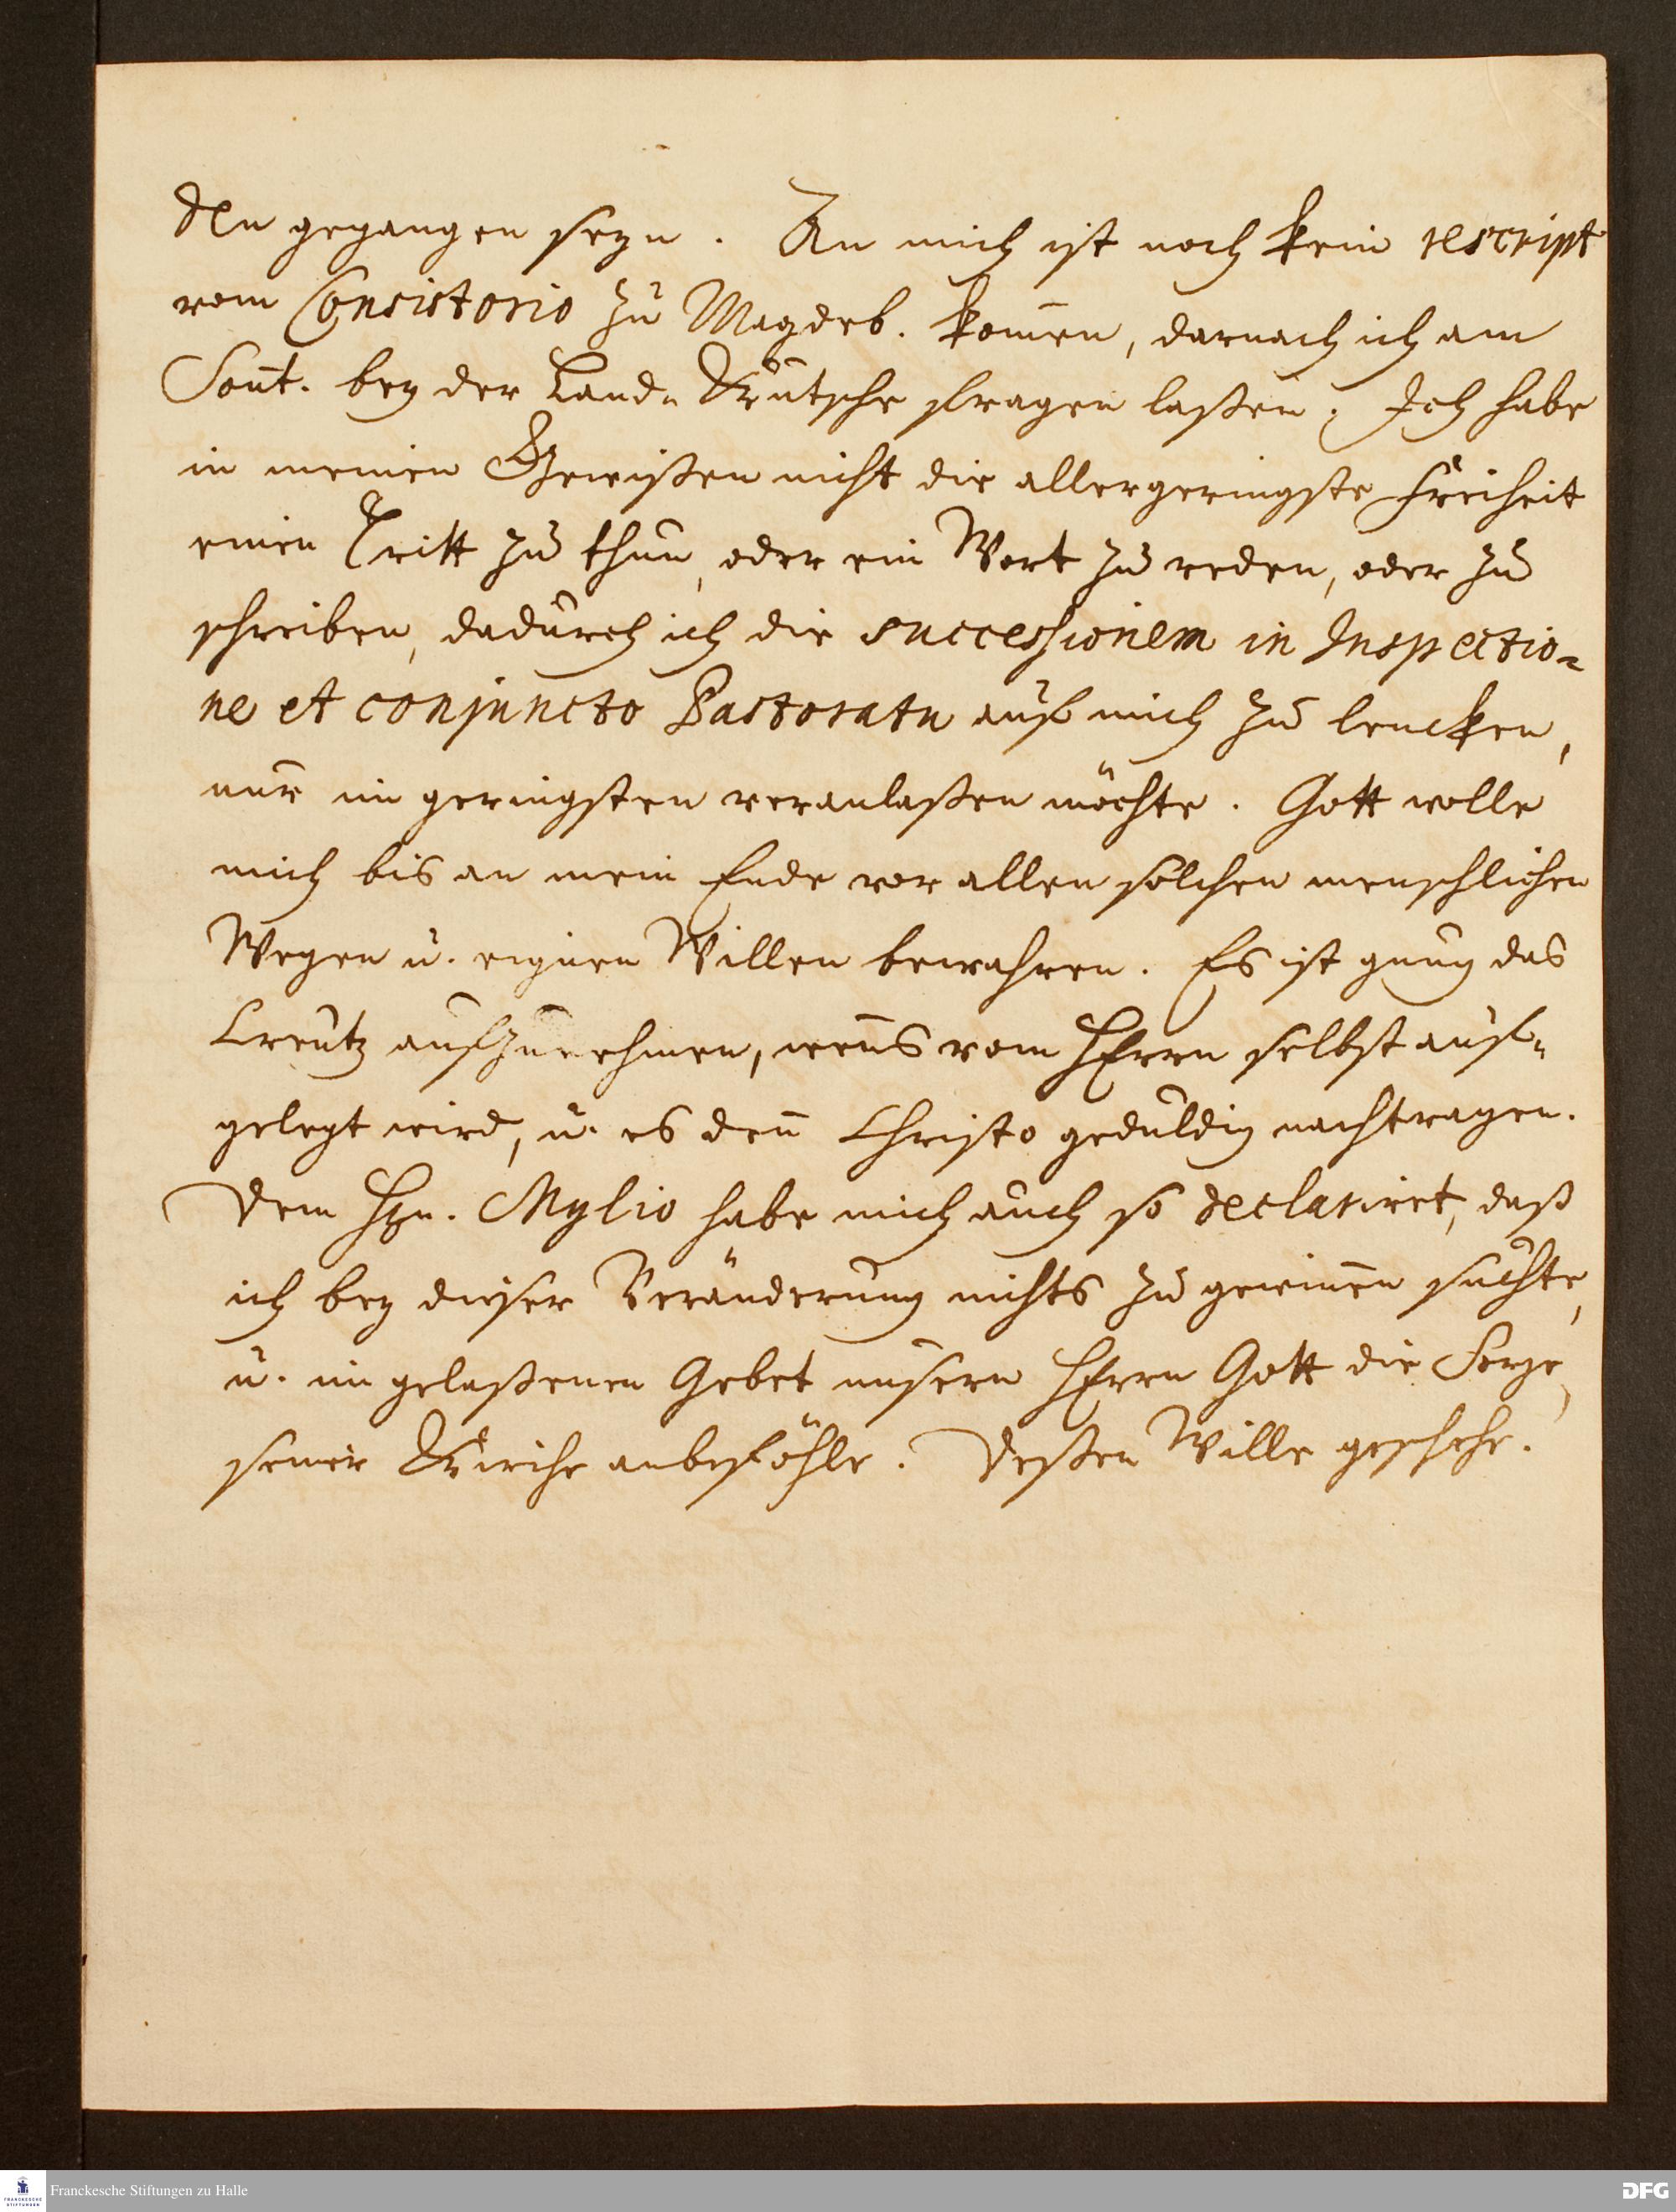 den gegangen seyn. An mich ist noch kein rescript
vom Consistorio zu Magdeb. kom̄en, darnach ich am
Son̄t. bey der Land-Kutsche fragen laßen. Ich habe
in meinen Gewißen nicht die allergeringste Freiheit
einen Tritt zu thun, oder ein Wort zu reden, oder zu
schreiben, dadurch ich die successionem in Inspectio-
ne et conjuncto Pastoratu auf mich zu lencken,
nur im geringsten veranlaßen möchte. Gott wolle
mich bis an mein Ende vor allen solchen menschlichen
Wegen u. eignen Willen bewahren. Es ist gnug das
Creutz aufzunehmen, wen̄s vom HErrn selbst auf-
gelegt wird, u. es den̄ Christo geduldig nachtragen.
Dem Hrn. Mylio habe mich auch so declariret, daß
ich bey dieser Veränderung nichts zu gewin̄en suchte,
u. im gelaßenen Gebet unsern HErrn Gott die Sorge
seiner Kirche anbeföhle. Deßen Wille geschehe.
Franckesche Stiftungen zu Halle
DFG